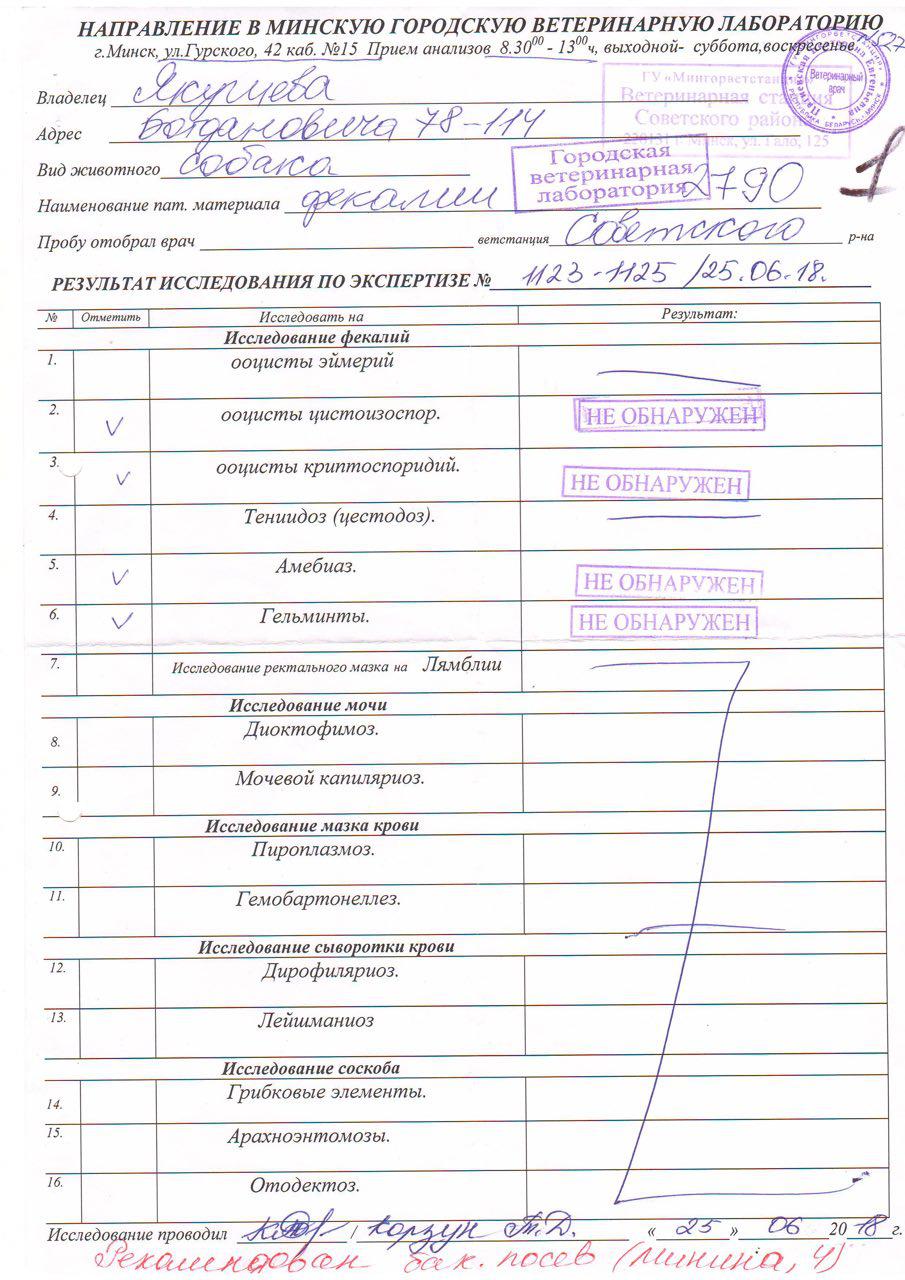 НАПРАВЛЕНИЕ В МИНСКУЮ ГОРОДСКУЮ ВЕТЕРИНАРНУЮ ЛАБОРАТОРИЮ
г.Минск, ул.Гурского, 42 каб. №15 Прием анализов 8.30⁰⁰ - 13⁰⁰ч, выходной- суббота,воскресенье
Ветеринарный врач
ГУ «Мингорветстанция»
Ветеринарная станция
Советского района
220131 г. Минск, ул. Гало, 125
Владелец
Адрес Богдановича 78-114
Вид животного собака
Городская
ветеринарная
лаборатория
2790
1
Наименование пат. материала фекалии
Пробу отобрал врач ветстанция Советского р-на
РЕЗУЛЬТАТ ИССЛЕДОВАНИЯ ПО ЭКСПЕРТИЗЕ № 1123-1125 /25.06.18.
№ Отметить Исследовать на Результат:
Исследование фекалий
1. ооцисты эймерий
2. V ооцисты цистоизоспор. НЕ ОБНАРУЖЕН
3. V ооцисты криптоспоридий. НЕ ОБНАРУЖЕН
4. Тениидоз (цестодоз).
5. V Амебиаз. НЕ ОБНАРУЖЕН
6. V Гельминты. НЕ ОБНАРУЖЕН
7. Исследование ректального мазка на Лямблии
Исследование мочи
8. Диоктофимоз.
9. Мочевой капиляриоз.
Исследование мазка крови
10. Пироплазмоз.
11. Гемобартонеллез.
Исследование сыворотки крови
12. Дирофиляриоз.
13. Лейшманиоз
Исследование соскоба
14. Грибковые элементы.
15. Арахноэнтомозы.
16. Отодектоз.
Исследование проводил / Корзун Т.Д. « 25 » 06 20 18 г.
Рекомендован бак. посев (Минина, 4)